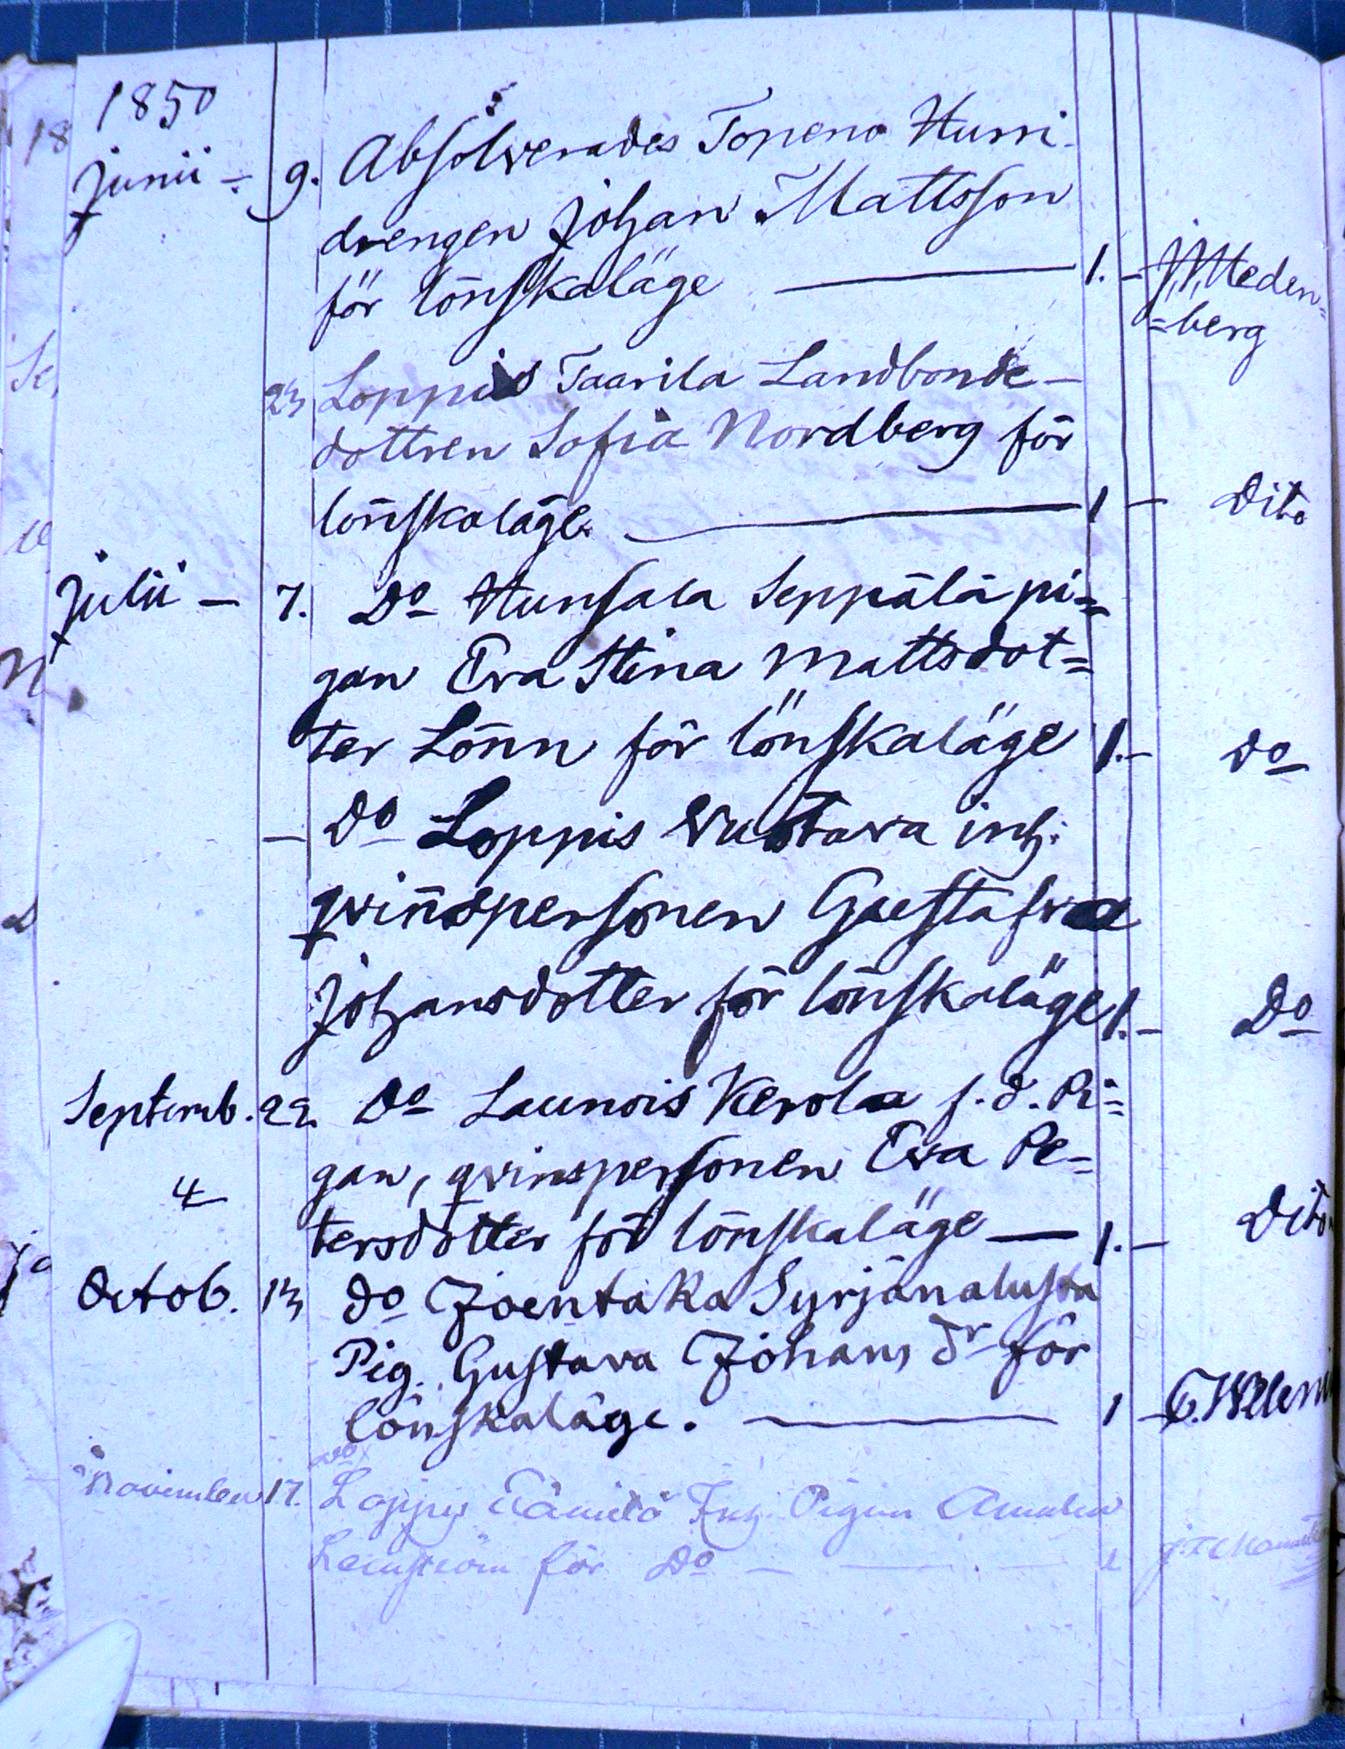 1850
Junii 9. Absolverades Topeno Hurri
drengen Johan Mattsson
för lönskaläge — 1. — Heden=
=berg
23 Loppis Taarila Landbonde-
dottren Sofia Nordberg för
lönskaläge — 1 — Dito
Julii — 7. Do Hunsala Seppälä pi=
gan Eva Stina Mattsdot=
ter Lönn för lönskaläge 1. — Do
— Do Loppis Vustava inh.
qvinspersonen Gustafva
Johansdotter för lönskaläge 1. — Do
Septemb. 22 Do Launois Kerola f.d. Pi=
gan, qvinspersonen Eva Pe=
4
tersdotter för lönskaläge — 1. — Dito
Octob. 13 do Joentaka Syrjänalusta
Pig. Gustava Johans dr för
lönskaläge. — 1 —
November 17. Do
Loppis Inh. Pigan
för Do — 1